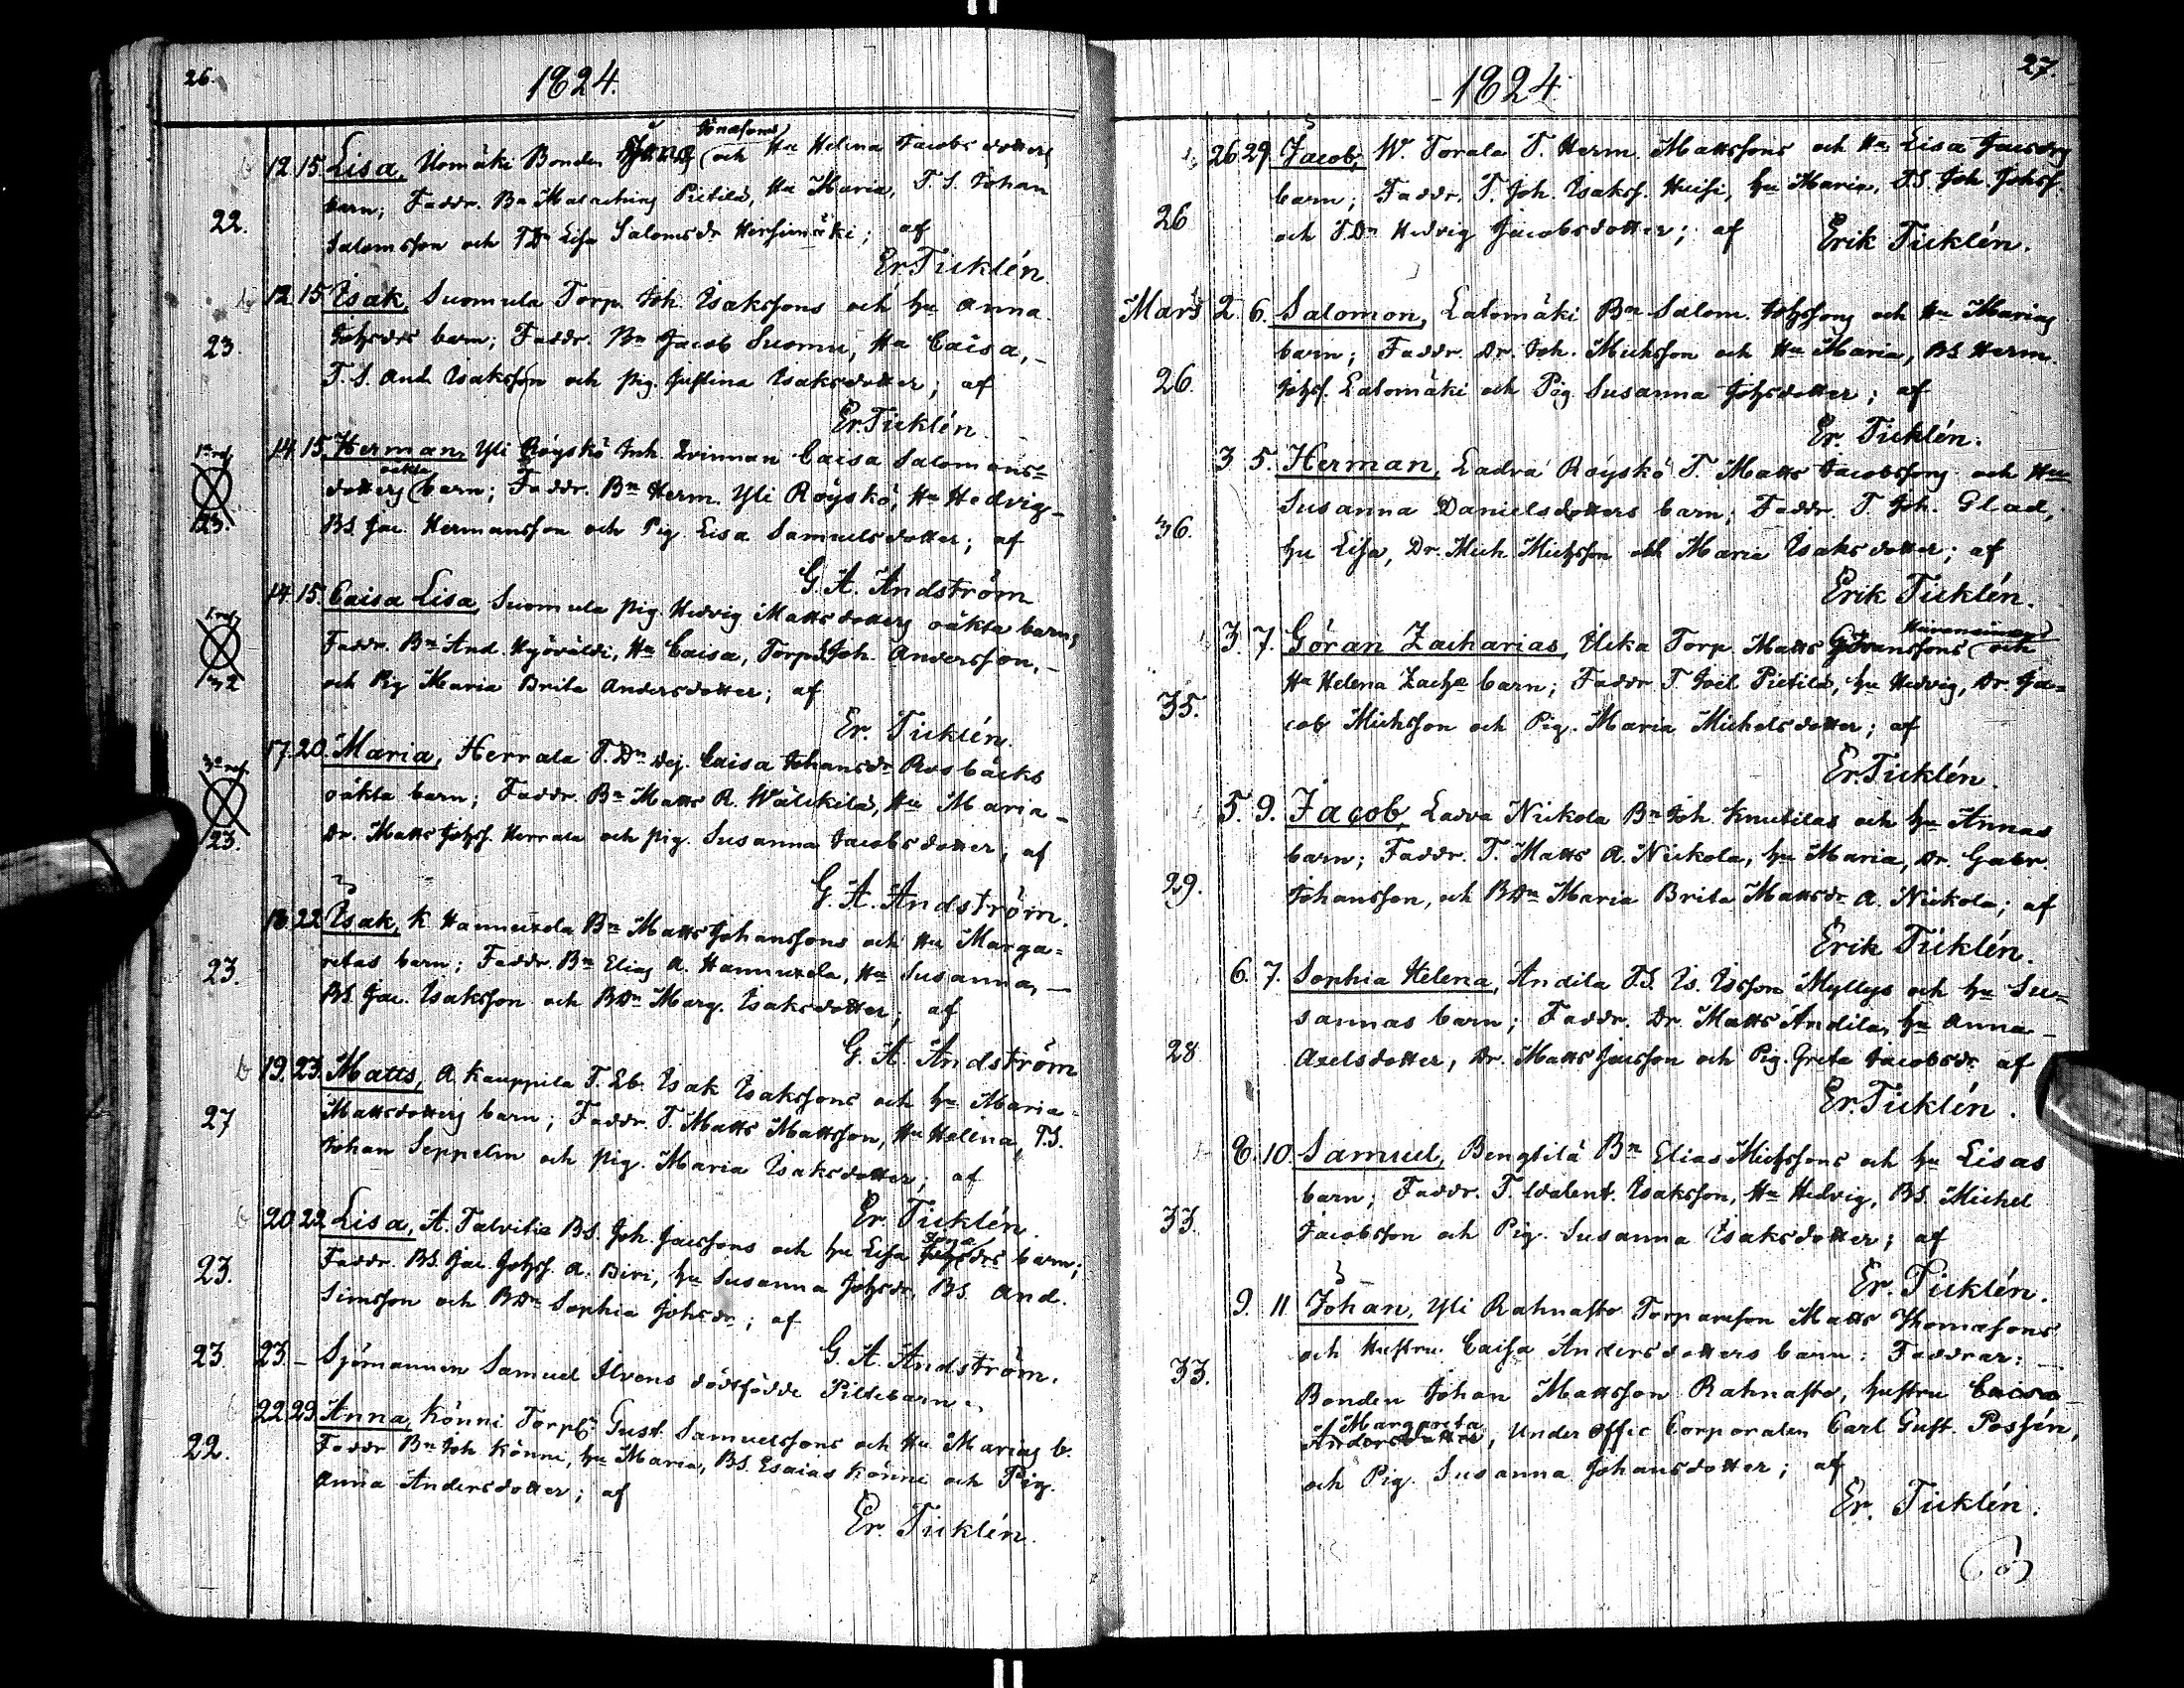 26.
1824.
12. 15. Lisa, Uomäki Bonden Jonas Jonasons och Hu Helena Jacobs dotters
barn; Faddr. Bn Malachias Pietilä, Hu Maria, T.S. Johan
22.
Salomsson och TDn Lisa Salomsdr Hirsimäki; af
Er. Ticklén
12. 15. Isak, Suomula Torp. Joh. Isakssons och hu Anna
Johsdrs barn; Faddr. Bn Jacob Suomu, Hu Caisa, –
23.
T.S. And. Isaksson och pig. Justina Isaksdotter; af
Er. Ticklén
14. 15. Herman, Yli Röyskö Inh. Qvinnan Caisa Salomons=
dotters oäkta barn; Faddr. Bn Herm. Yli Röyskö, Hu Hedvig –
23.
BS. Jac. Hermansson och Pig. Lisa Samuelsdotter; af
G. A. Andström
14. 15. Caisa Lisa, Suomula pig. Hedvig Mattsdotters oäkta barn;
Faddr. Bn And. Hyövälti, Hu Caisa, Torp.S Joh. Andersson, –
32
och Pig Maria Brita Andersdotter; af
Er. Ticklén.
17. 20. Maria, Herrala T.Dn Dej. Caisa Johansdr Rosbäcks
oäkta barn; Faddr. Bn Matts R. Wälikilä, Hu Maria –
23.
Dr. Matts Johss. Herrala och pig. Susanna Jacobsdotter; af
G. A. Andström.
18. 22. Isak, K. Hannuxela Bn Matts Johanssons och Hu Marga=
retas barn; Faddr. Bn Elias A. Hannuxela, Hu Susanna, –
23.
BS. Jac. Isaksson och BDn Marg. Isaksdotter; af
G. A. Andström
19. 23. Matts, A. Kauppila T. Eb. Isak Isakssons och hu Maria
Mattsdotters barn; Faddr. T. Matts Mattsson, Hu Helena, T.S.
27
Johan Seppelin och pig. Maria Isaksdotter; af
Er. Ticklén.
20. 22. Lisa, A. Talvitie BS. Joh. Jacssons och hu Lisa Johsdrs barn;
Faddr. BS. Jac. Johss. A. Biri, hu Susanna Johsdr, BS. And.
23.
Simsson och BDn Sophia Johsdr; af
G. A. Andström.
23. 23. – Sjömannen Samuel Ilvens dödfödde Piltebarn.
22. 29. Anna, Könni Torp. Gust. Samuelssons och Hu Marias b.
22.
Faddr. Bn Joh. Könni, hu Maria, BS. Esaias Könni och Pig.
Anna Andersdotter; af
Er. Ticklén.
27.
1824
26. 29. Jacob, W. Torala T. Herm. Mattssons och Hu Lisa Jacsdrs
barn; Faddr. T. Joh. Isakss. Huisi, hu Maria, T.S. Joh. Johss.
26
och T.Dn Hedvig Jacobsdotter; af Erik Ticklén.
Mars 2. 6. Salomon, Latomäki Bn Salom. Johssons och Hu Marias
barn; Faddr. Dr. Joh. Michsson och Hu Maria, BS. Herm.
26.
Johss. Latomäki och Pig Susanna Johsdotter; af
Er. Ticklén.
3. 5. Herman, Ladva Röyskö T. Matts Jacobssons och Hu
Susanna Danielsdotters barn; Faddr. T. Joh. Glad,
36.
hu Lisa, Dr. Mich. Michsson och Maria Isaksdotter; af
Erik Ticklén.
3. 7. Göran Zacharias, Ilkka Torp. Matts Göranssons och
Hu Helena Zachæ barn; Faddr. T. Joel Pietilä, hu Hedvig, Dr. Ja=
35.
cob Michsson och Pig. Maria Michelsdotter; af
Er. Ticklén.
5. 9. Jacob, Ladva Nickola Bn Joh. Knutilas och hu Annas
barn; Faddr. T. Matts A. Nickola, hu Maria, Dr. Gabr.
29.
Johansson, och BDn Maria Brita Mattsdr A. Nickola; af
Erik Ticklén.
6. 7. Sophia Helena, Andila T.S. Is. Isssons Myllys och hu Su=
sannas barn; Faddr. Dr. Matts Andila, hu Anna –
28
Axelsdotter, Dr. Matts Jacsson och Pig. Greta Jacobsdr af
Er. Ticklén.
8. 10. Samuel, Bengtilä Bn Elias Michssons och hu Lisas
barn; Faddr. T. Valent. Isaksson, Hu Hedvig, BS. Michel
33.
Jacobsson och Pig. Susanna Isaksdotter; af
Er. Ticklén.
9. 11 Johan, Yli Rahnasto Torpareson Matts Thomasons
och Hustru Caisa Andersdotters barn: Faddrar: –
33.
Bonden Johan Mattsson Rahnasto, hustru Caisa
Margareta
Andersdotter, Under Offic Corporalen Carl Gust. Possén,
och Pig. Susanna Johansdotter; af
Er. Ticklén.